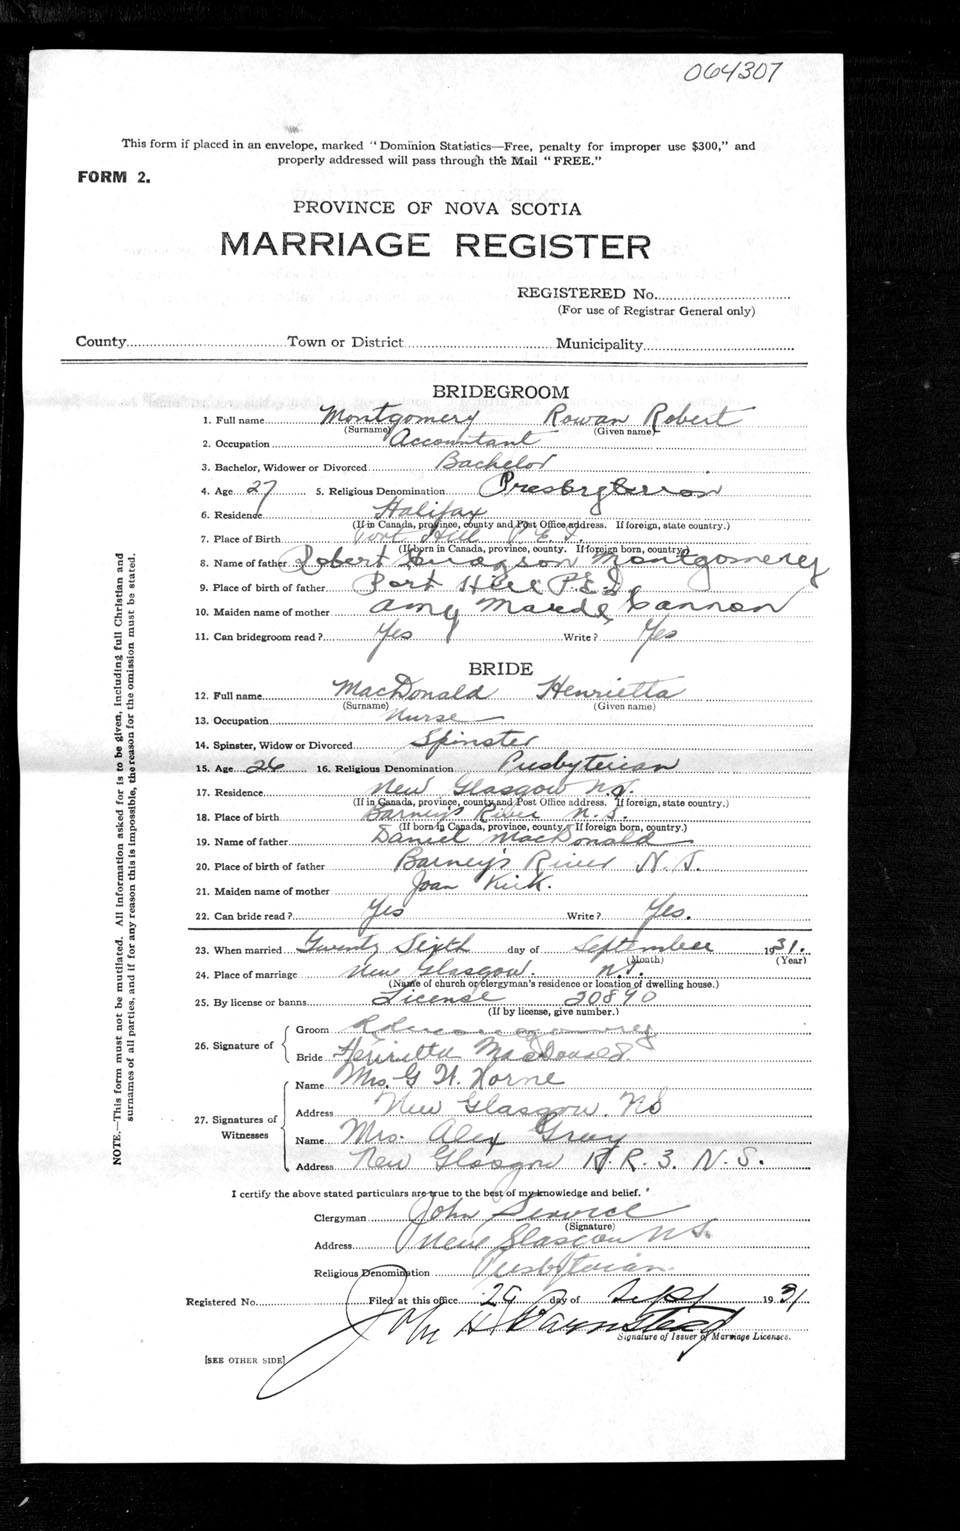 064307
This form if placed in an envelope, marked "Dominion Statistics—Free, penalty for improper use $300," and
properly addressed will pass through the Mail "FREE."
FORM 2.
PROVINCE OF NOVA SCOTIA
MARRIAGE REGISTER
REGISTERED No.
(For use of Registrar General only)
County Town or District Municipality
BRIDEGROOM
1. Full name Montgomery Rowan Robert
(Surname) (Given name)
2. Occupation Accountant
3. Bachelor, Widower or Divorced Bachelor
4. Age 27 5. Religious Denomination Presbyterian
6. Residence Halifax
(If in Canada, province, county and Post Office address. If foreign, state country.)
7. Place of Birth Port Hill P.E.I.
(If born in Canada, province, county. If foreign born, country.)
8. Name of father Robert Montgomery
9. Place of birth of father Port Hill P.E.I.
10. Maiden name of mother Amy Maude Cannon
11. Can bridegroom read? Yes Write? Yes
BRIDE
12. Full name MacDonald Henrietta
(Surname) (Given name)
13. Occupation Nurse
14. Spinster, Widow or Divorced Spinster
15. Age 26 16. Religious Denomination Presbyterian
17. Residence New Glasgow N.S.
(If in Canada, province, county and Post Office address. If foreign, state country.)
18. Place of birth Barney's River N.S.
(If born in Canada, province, county. If foreign born, country.)
19. Name of father Daniel MacDonald
20. Place of birth of father Barney's River N.S.
21. Maiden name of mother Joan Kirk.
22. Can bride read? Yes Write? Yes.
23. When married Twenty Sixth day of September 1931.
(Month) (Year)
24. Place of marriage New Glasgow. N.S.
(Name of church or clergyman's residence or location of dwelling house.)
25. By license or banns License 20890
(If by license, give number.)
26. Signature of
Groom
Bride Henrietta MacDonald
27. Signatures of Witnesses
Name Mrs. G. W. Horne
Address New Glasgow. NS
Name Mrs. Alex Gray
Address New Glasgow R.R.3. N.S.
I certify the above stated particulars are true to the best of my knowledge and belief.
Clergyman John Service
(Signature)
Address New Glasgow N.S.
Religious Denomination Presbyterian
Registered No. Filed at this office 29 day of Sept 1931
John H
Signature of Issuer of Marriage Licenses.
[SEE OTHER SIDE]
NOTE.—This form must not be mutilated. All information asked for is to be given, including full Christian and
surnames of all parties, and if for any reason this is impossible, the reason for the omission must be stated.